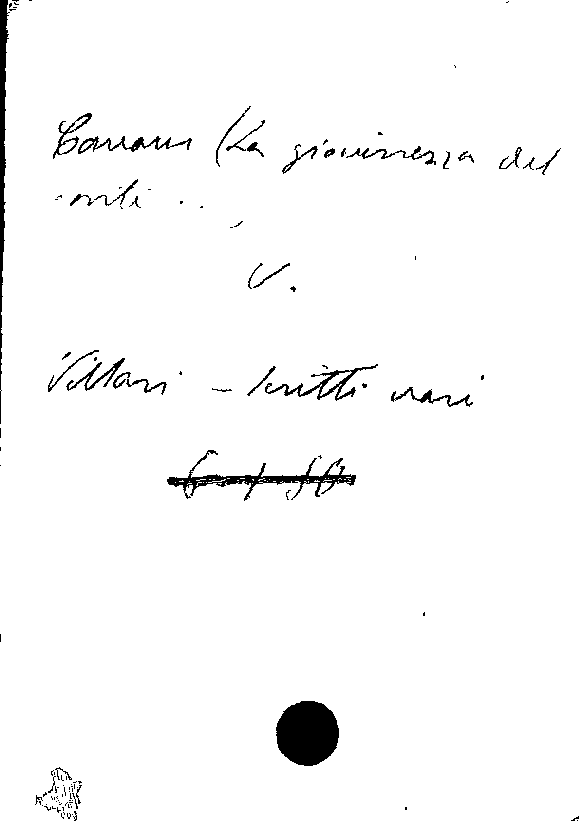 Carraro (La giovinezza del
conte . . ,
V.
Villari – Scritti vari